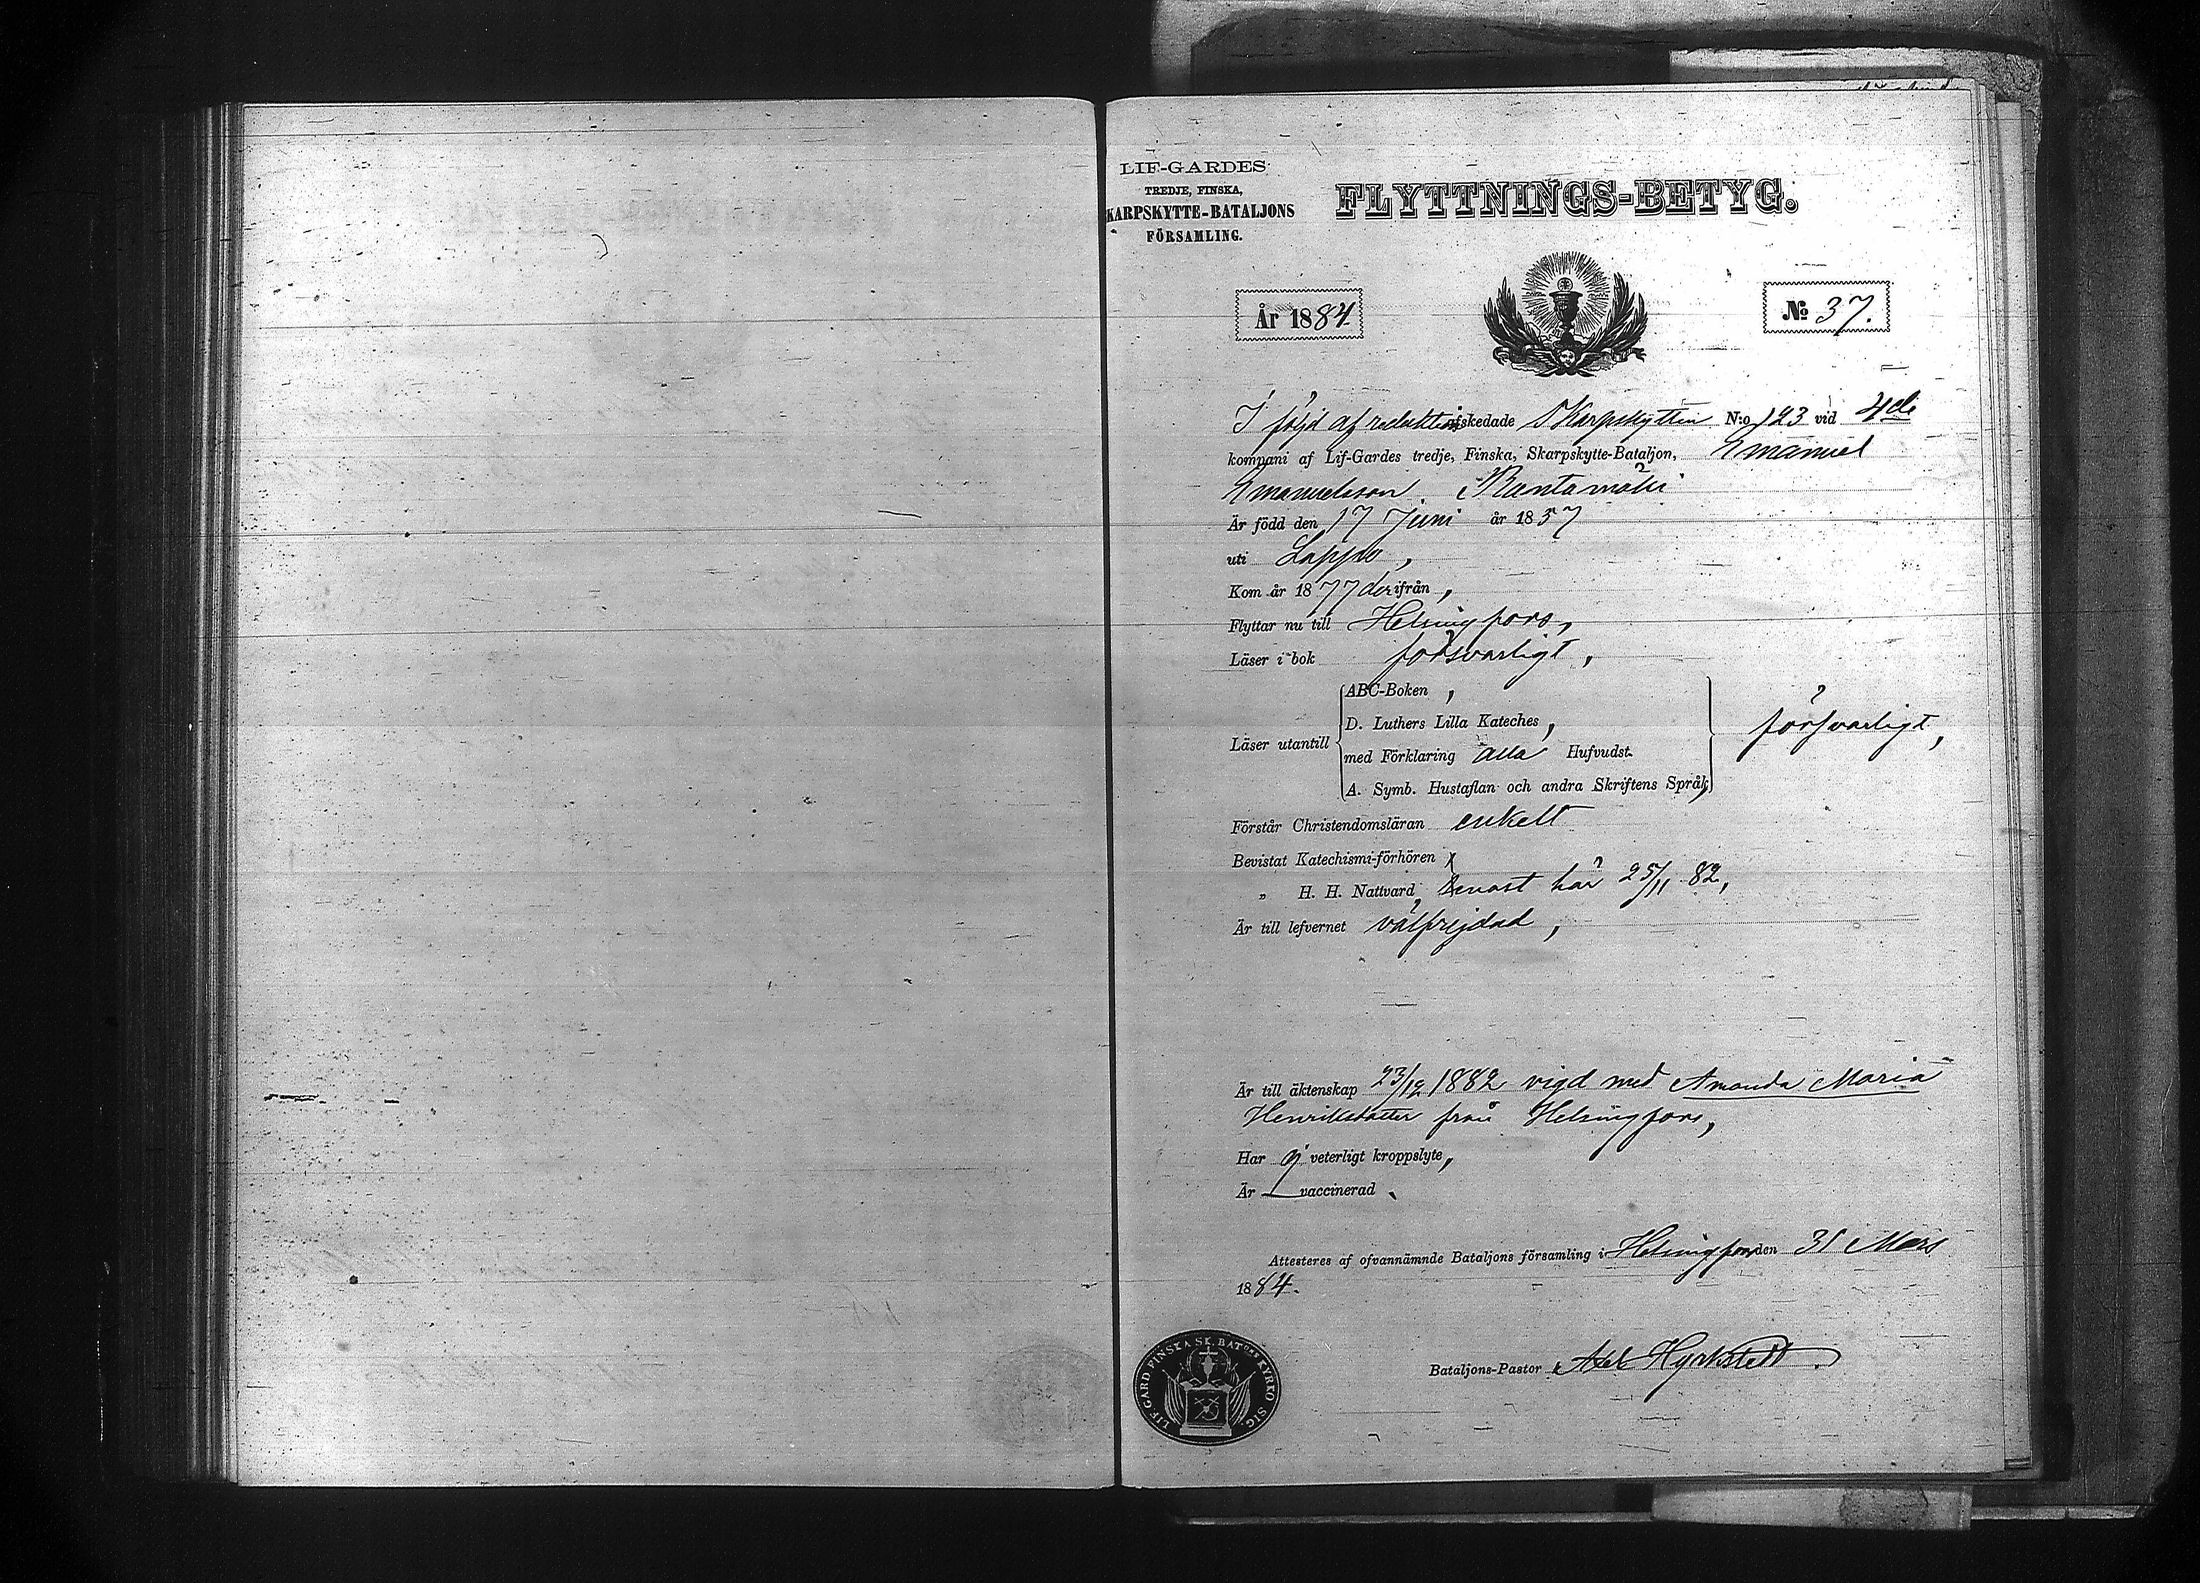 LIF-GARDES
TREDJE, FINSKA,
KARPSKYTTE-BATALJONS
FÖRSAMLING.
FLYTTNINGS-BETYG.
År 1884.
No 37.
I följd af reduktion afskedade Skarpskytten N:o 123 vid 4de
kompani af Lif-Gardes tredje, Finska, Skarpskytte-Bataljon, Emanuel
Emanuelsson Rantamäki
Är född den 17 Juni år 1857
uti Lappo,
Kom år 1877 derifrån,
Flyttar nu till Helsingfors,
Läser i bok försvarligt,
ABC-Boken,
D. Luthers Lilla Kateches,
Läser utantill
med Förklaring alla Hufvudst.
A. Symb. Hustaflan och andra Skriftens Språk,
försvarligt,
Förstår Christendomsläran enkelt
Bevistat Katechismi-förhören
„ H. H. Nattvard, senast här 25/11 82,
Är till lefvernet välfrejdad,
Är till äktenskap 23/12 1882 vigd med Amanda Maria
Henriksdotter från Helsingfors,
Har ej veterligt kroppslyte,
Är vaccinerad.
Attesteres af ofvannämnde Bataljons församling i Helsingfors den 31 Mars
1884.
Bataljons-Pastor Axel Hyrkstedt.
LIF.GARD.FINSKA SK.BATONS KYRKO SIG.